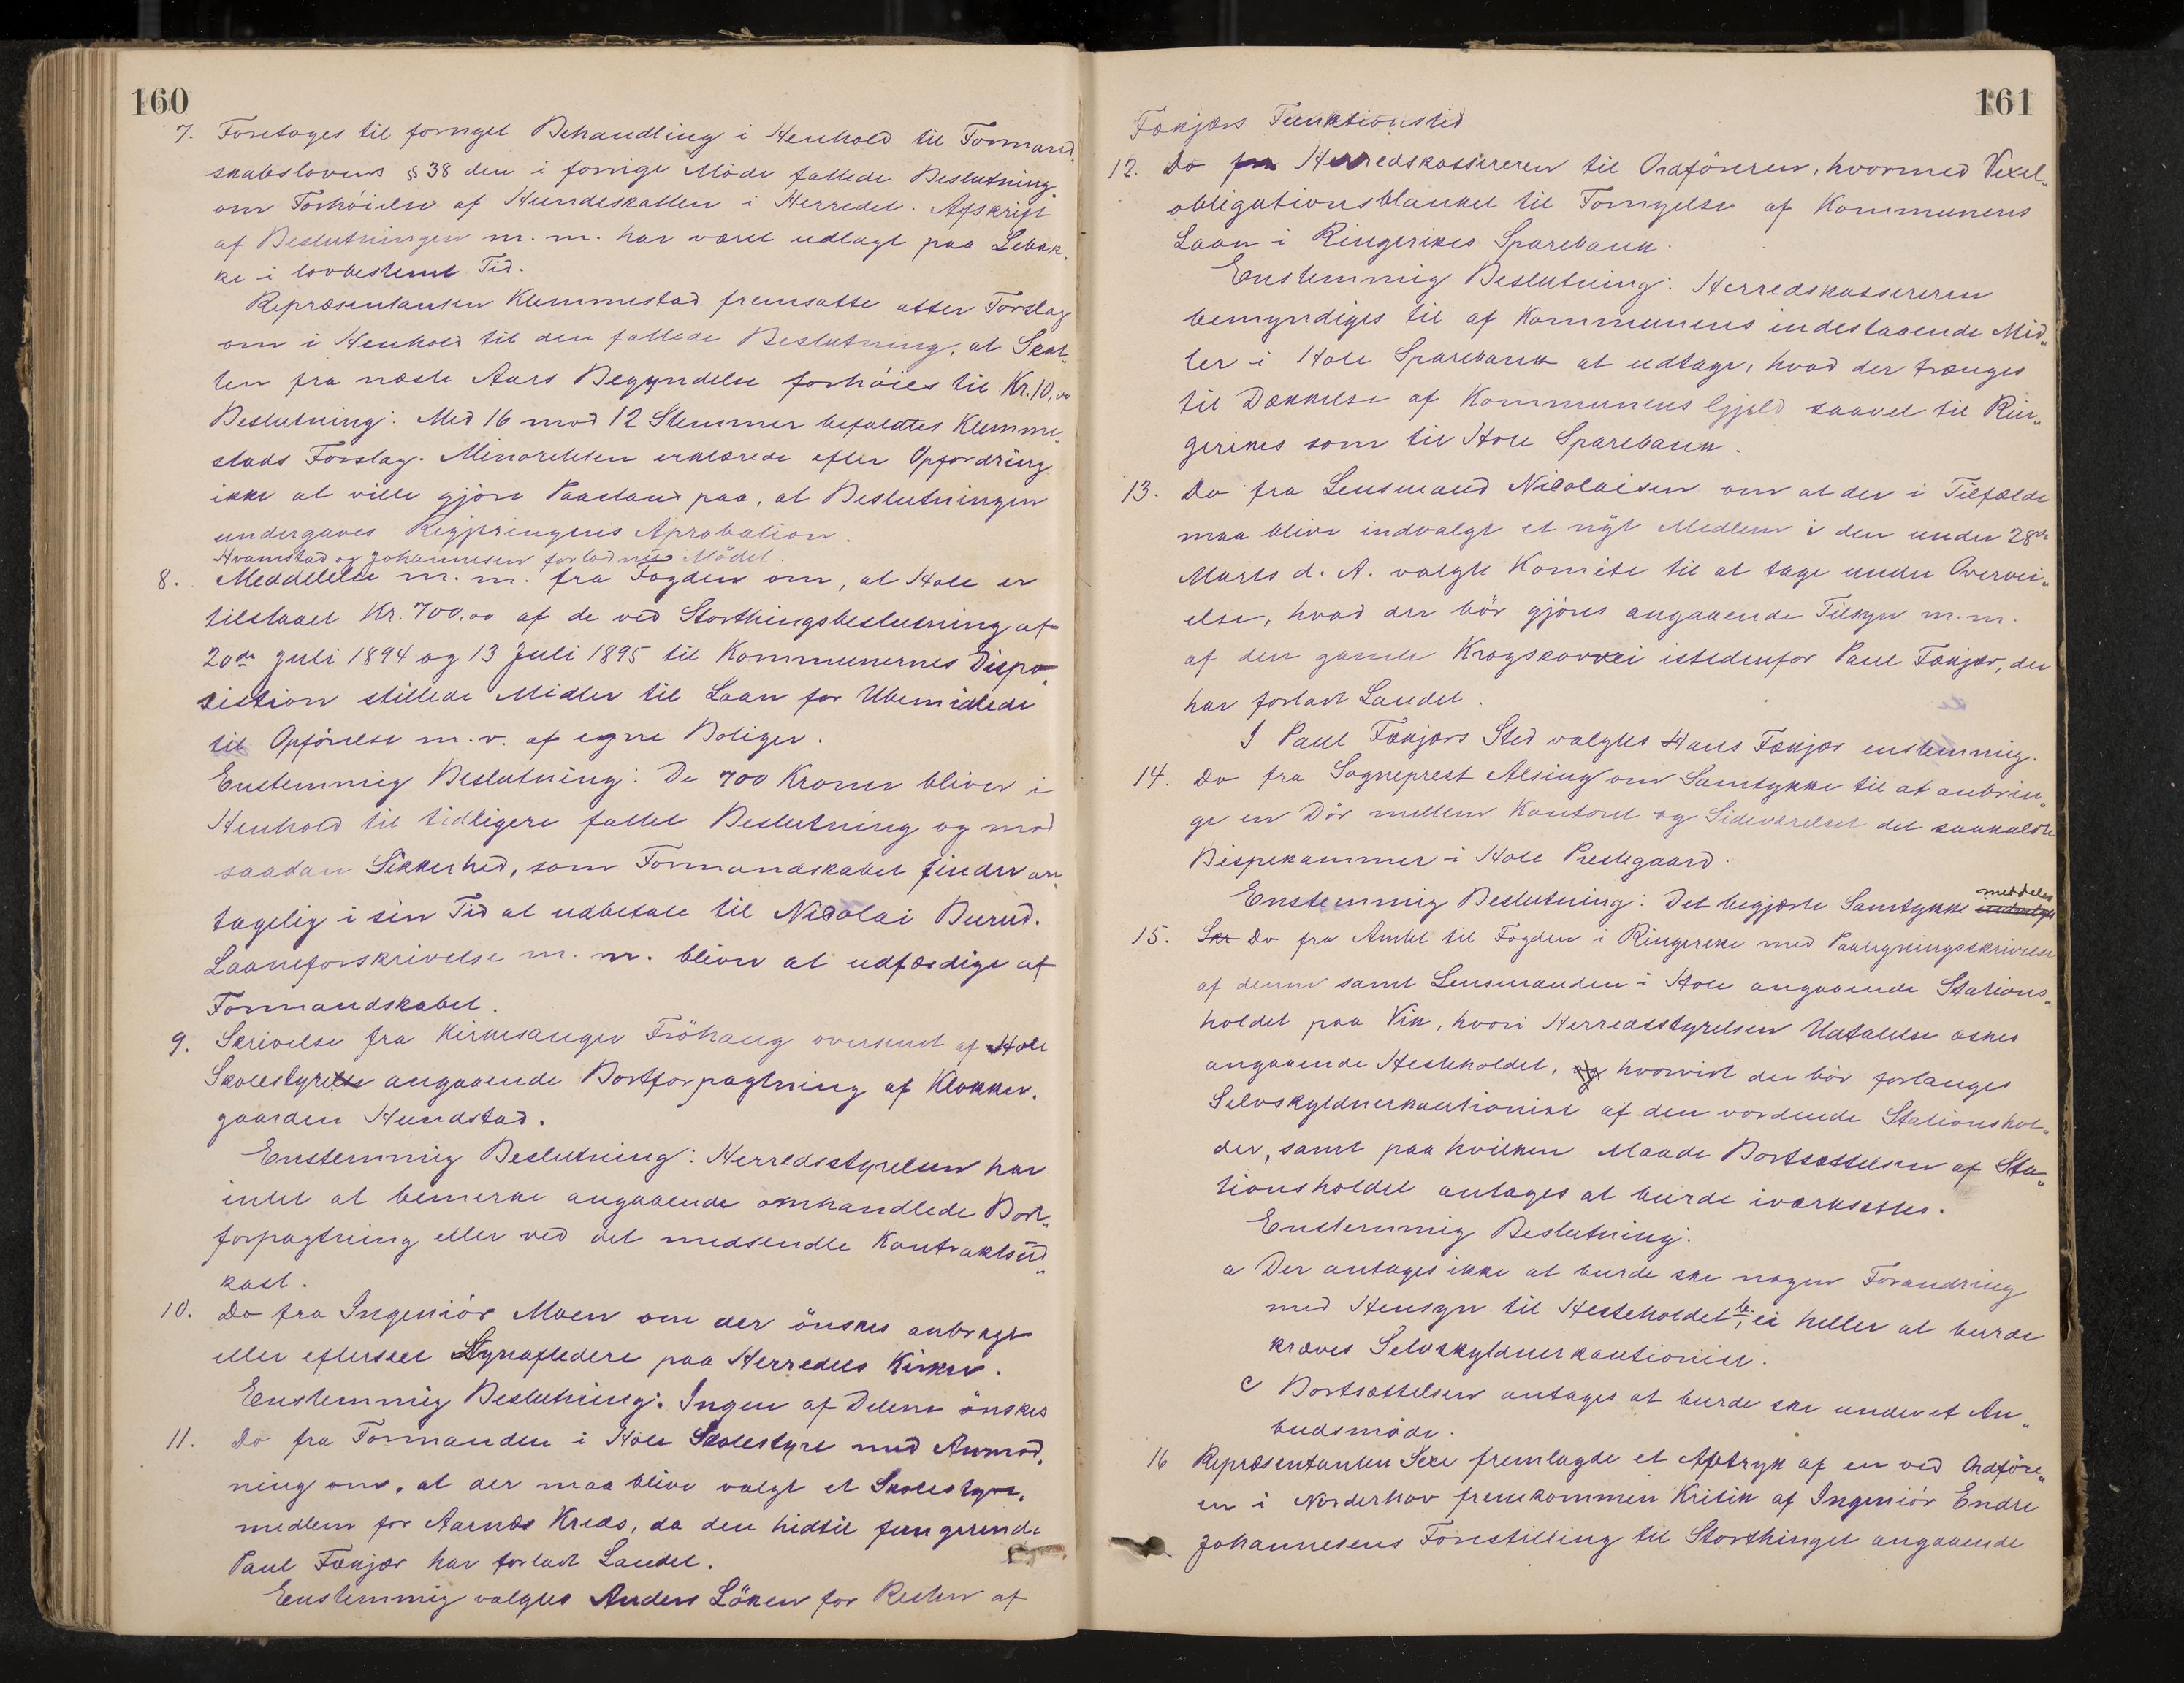 160
7. Foretages til fornyet Behandling i Henhold til Formand„
skabslovens § 38 den i forrige Møde fattede Beslutning
om Forhöielse af Hundeskatten i Herredet. Afskrift
af Beslutningen m. m. har været udlagt paa Lebak„
ke i lovbestemt Tid.
Repræsentanten Klemmestad fremsatte atter Forslag
om i Henhold til den fattede Beslutning, at Skat„
ten fra næste Aars Begyndelse forhöies til Kr. 10,00
Beslutning: Med 16 mod 12 Stemmer befaldtes Klemme„
stads Forslag. Minoriteten erklærede efter Opfordring
ikke at ville gjöre Paastand paa, at Beslutningen
undergaves Regjeringens Aprobation.
Hvamstad og Johannesen forlod nu Mödet.
8. Meddelelse m. m. fra Fogden om, at Hole er
tilstaaet Kr. 700,00 af de ved Storthingsbeslutning af
20de Juli 1894 og 13 Juli 1895 til Kommunernes Dispo„
sistion stillede Midler til Laan for Ubemidlede
til Opförelse m. v. af egne Boliger.
Enstemmig Beslutning: De 700 Kroner bliver i
Henhold til tidligere fattet Beslutning og mod
saadan Sikkerhed, som Formandskabet finder an„
tagelig i sin Tid at udbetale til Nicolai Burud.
Laaneforskrivelse m. m. bliver at udfærdige af
Formandskabet.
9. Skrivelse fra Kirkesanger Fröhaug oversendt af Hole
Skolestyrelse angaaende Bortforpagtning af Klokker„
gaarden Hundstad.
Enstemmig Beslutning: Herredsstyrelsen har
intet at bemerke angaaende omhandlede Bort„
forpagtning eller ved det medsendte Kontraktsud„
kast.
10. Do fra Ingeniör Moen om der önskes anbragt
eller efterseet Lynafledere paa Herredets Kirker.
Enstemmig Beslutning: Ingen af Delene önskes
11. Do fra Formanden i Hole Skolestyre med Anmod„
ning om, at der maa blive valgt et Skolestyre„
medlem for Aarnæs Kreds, da den hidtil fungerende
Paul Fækjær har forladt Landet.
Enstemmig valgtes Anders Löken for Resten af
161
Fækjærs Funktionstid
12. Do fra Herredskassereren til Ordföreren, hvormed Vexel„
obligationsblanket til Fornyelse af Kommunens
Laan i Ringerikes Sparebank.
Enstemmig Beslutning: Herredskassereren
bemyndiges til af Kommunens indestaaende Mid„
ler i Hole Sparebank at udtage, hvad der trænges
til Dækkelse af Kommunens Gjeld saavel til Rin„
gerikes som til Hole Sparebank.
13. Do fra Lensmand Nicolaisen om at der i Tilfælde
maa blive indvalgt et nyt Medlem i den under 28de
Marts d. A. valgte Komite til at tage under Overvei„
else, hvad der bör gjöres angaaende Tilsyn m. m.
af den gamle Krogskovvei istedenfor Paul Fækjær, der
har forladt Landet.
I Paul Fækjærs Sted valgtes Hans Fækjær enstemmig.
14. Do fra Sogneprest Alsing om Samtykke til at anbrin„
ge en Dör mellem Kontoret og Sideværelset det saakaldte
Bispekammer i Hole Prestegaard.
Enstemmig Beslutning: Det begjærte Samtykke indvilges meddeles
15. Skr Do fra Amtet til Fogden i Ringerike med Paategningsskrivelse
af denne samt Lensmanden i Hole angaaende Stations„
holdet paa Vik, hvori Herredsstyrelsen Udtalelse æskes
angaaende Hesteholdet, og hvorvidt der bör forlanges
Selvskyldnerkautionist af den vordende Stationshol„
der, samt paa hvilken Maade Bortsættelsen af Sta„
tionsholdet antages at burde iværksættes.
Enstemmig Beslutning:
a Der antages ikke at burde ske nogen Forandring
med Hensyn til Hesteholdet, b. ei heller at burde
kræves Selvskyldnerkautionist.
c Bortsættelsen antages at burde ske under et An„
budsmöde.
16 Repræsentanten Sexe fremlagde et Aftryk af en ved Ordföre„
en i Norderhov fremkommen Kritik af Ingeniör Endre
Johannesens Forestilling til Storthinget angaaende